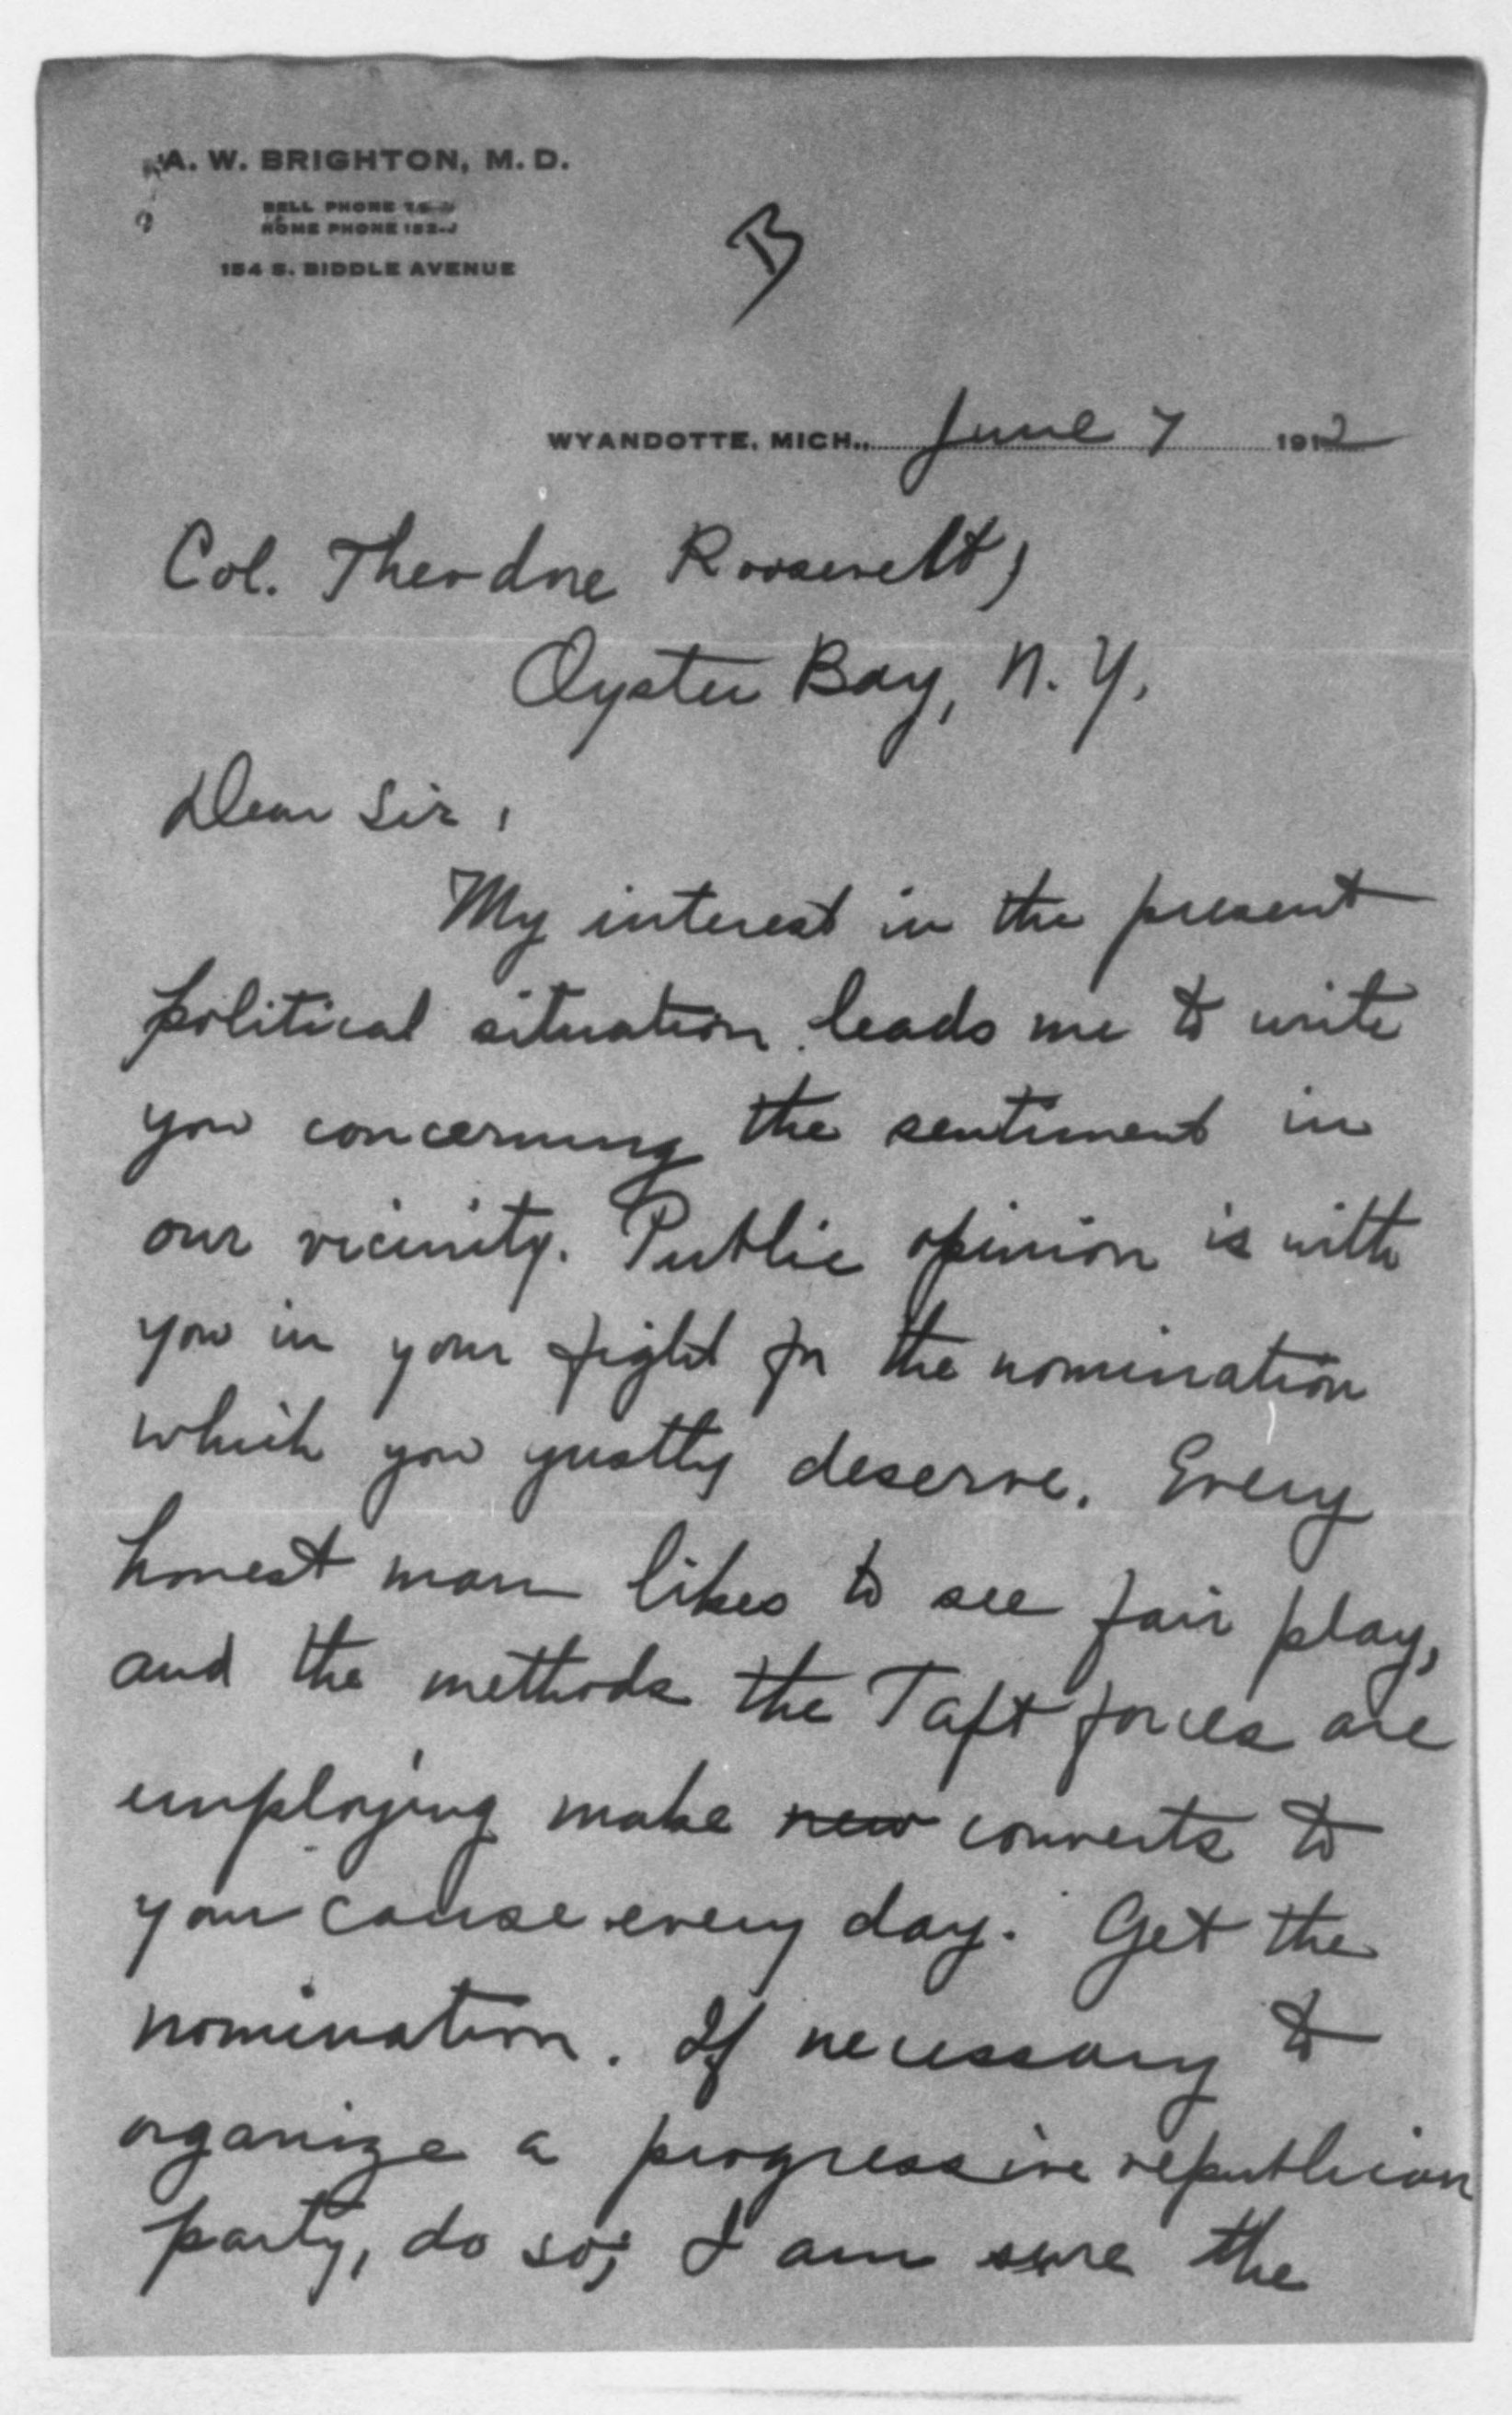 A. W. BRIGHTON, M. D.
BELL PHONE
HOME PHONE 152-J
154 S. BIDDLE AVENUE
B
WYANDOTTE, MICH., June 7 1912
Col. Theodore Roosevelt,
Oyster Bay, N. Y.
Dear Sir,
My interest in the present
political situation leads me to write
you concerning the sentiment in
our vicinity. Public opinion is with
you in your fight for the nomination
which you justly deserve. Every
honest man likes to see fair play,
and the methods the Taft forces are
employing make new converts to
your cause every day. Get the
nomination. If necessary to
organize a progressive republican
party, do so; I am sure the